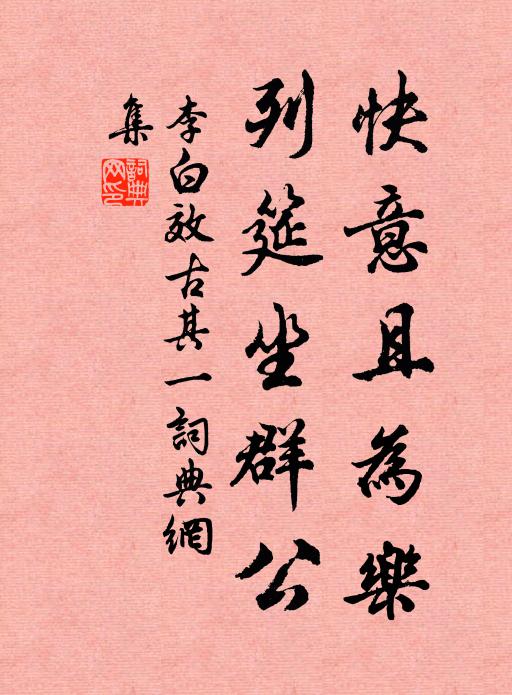 快意且為樂
列筵坐群公
李白效古其一詞典網
集
詞典
网印